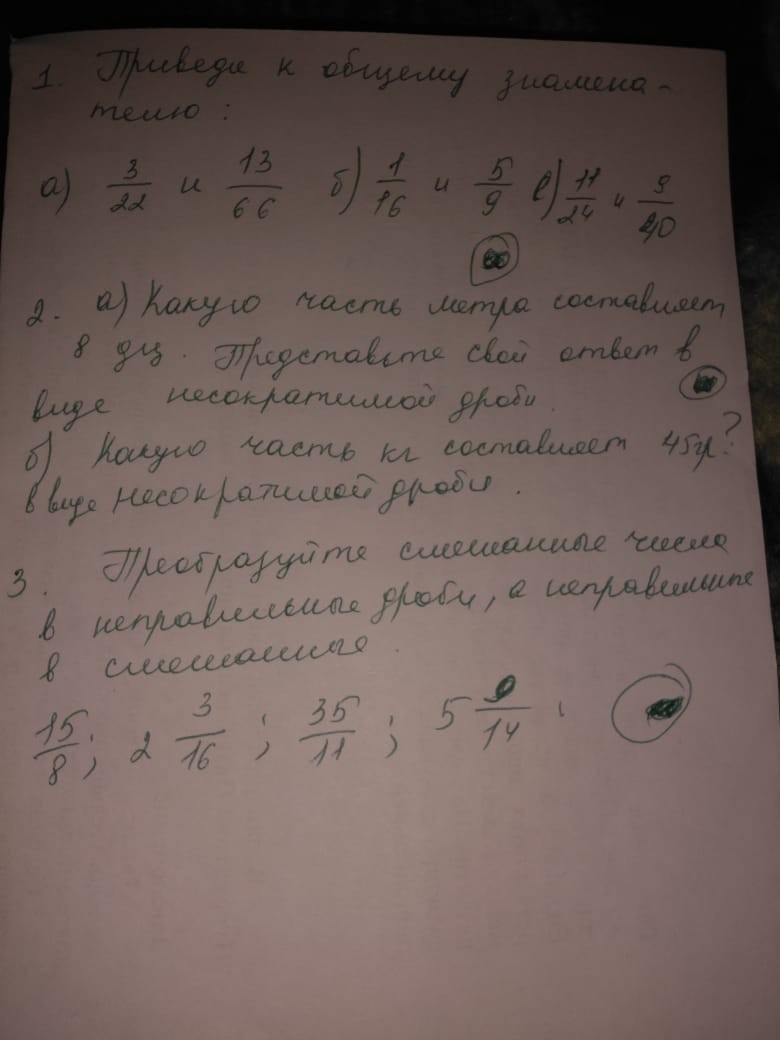 1. Приведи к общему знамена-
телю :
а) 3/22 и 13/66 б) 1/16 и 5/9 в) 11/24 и 9/20
2. а) Какую часть метра составляет
8 дц. Представьте свой ответ в
виде несократимой дроби.
б) Какую часть кг составляет 45гр?
в виде несократимой дроби.
3. Преобразуйте смешанные числа
в неправильные дроби, а неправильные
в смешанные.
15/8; 2 3/16; 35/11; 5 9/14;